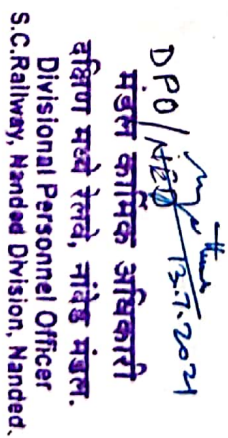 DPO/NED 13.7.2021
मंडल कार्मिक अधिकारी
दक्षिण मध्य रेलवे, नांदेड मंडल.
Divisional Personnel Officer
S.C.Railway, Nanded Division, Nanded.